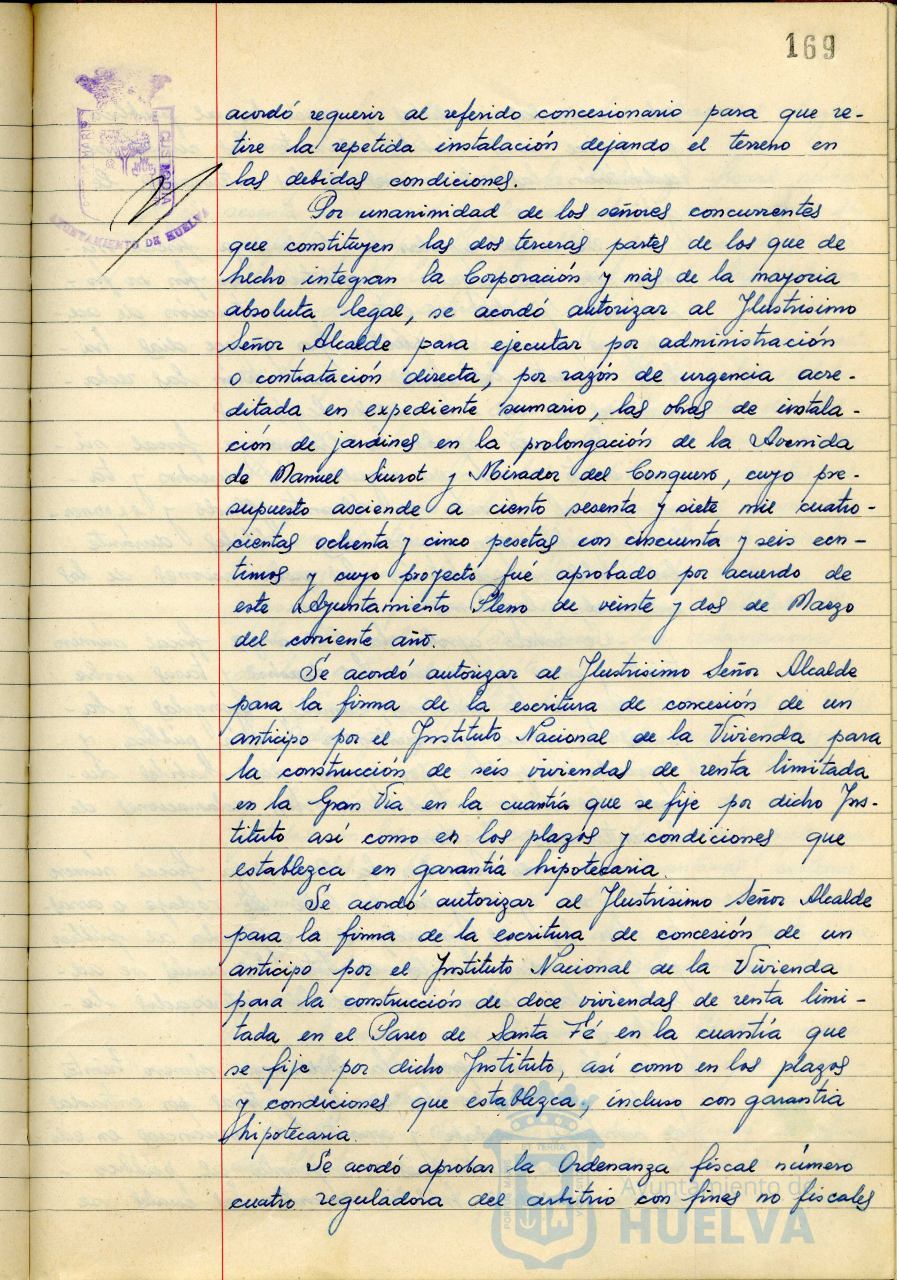 169
acordó requerir al referido concesionario para que re-
tire la repetida instalación dejando el terreno en
las debidas condiciones.
Por unanimidad de los señores concurrentes
que constituyen las dos terceras partes de los que de
hecho integran la Corporación y más de la mayoria
absoluta legal, se acordó autorizar al Ilustrisimo
Señor Alcalde para ejecutar por administración
o contratación directa, por razón de urgencia acre-
ditada en expediente sumario, las obras de instala-
ción de jardines en la prolongación de la Avenida
de Manuel Siurot y Mirador del Conquero, cuyo pre-
supuesto asciende a ciento sesenta y siete mil cuatro-
cientas ochenta y cinco pesetas con cincuenta y seis cen-
timos y cuyo proyecto fué aprobado por acuerdo de
este Ayuntamiento Pleno de veinte y dos de Marzo
del corriente año.
Se acordó autorizar al Ilustrisimo Señor Alcalde
para la firma de la escritura de concesión de un
anticipo por el Instituto Nacional de la Vivienda para
la construcción de seis viviendas de renta limitada
en la Gran Via en la cuantía que se fije por dicho Ins-
tituto así como en los plazos y condiciones que
establezca en garantía hipotecaria.
Se acordó autorizar al Ilustrisimo Señor Alcalde
para la firma de la escritura de concesión de un
anticipo por el Instituto Nacional de la Vivienda
para la construcción de doce viviendas de renta limi-
tada en el Paseo de Santa Fé en la cuantía que
se fije por dicho Instituto, así como en los plazos
y condiciones que establezca, incluso con garantia
hipotecaria.
Se acordó aprobar la Ordenanza fiscal número
cuatro reguladora del arbitrio con fines no fiscales
AYUNTAMIENTO DE HUELVA
Ayuntamiento de
HUELVA